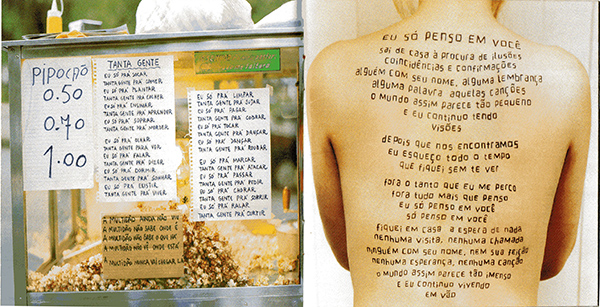 PIPOCÃO
0.50
0.70
1.00
TANTA GENTE
EU SÓ PRÁ SOCAR
TANTA GENTE PRÁ COMER
EU SÓ PRÁ PLANTAR
TANTA GENTE PRÁ COLHER
EU SÓ PRÁ ENSINAR
TANTA GENTE PRÁ APRENDER
EU SÓ PRÁ SOPRAR
TANTA GENTE PRÁ MORDER
EU SÓ PRÁ OLHAR
TANTA GENTE PARA VER
EU SÓ PRÁ FALAR
TANTA GENTE PRÁ DIZER
EU SÓ PRÁ DORMIR
TANTA GENTE PRÁ SONHAR
EU SÓ PRÁ EXISTIR
TANTA GENTE PRÁ VIVER
EU SÓ PRÁ LIMPAR
TANTA GENTE PRÁ SUJAR
EU SÓ PRÁ PAGAR
TANTA GENTE PRÁ COBRAR
EU SÓ PRÁ TOCAR
TANTA GENTE PRÁ DANÇAR
EU SÓ PRÁ GANHAR
TANTA GENTE PRÁ ROUBAR
EU SÓ PRÁ MARCAR
TANTA GENTE PRÁ ATACAR
EU SÓ PRÁ PASSAR
TANTA GENTE PRÁ PEDIR
EU SÓ PRÁ CHORAR
TANTA GENTE PRÁ SORRIR
EU SÓ PRÁ RALAR
TANTA GENTE PRÁ CURTIR
A MULTIDÃO AINDA NÃO VIU
A MULTIDÃO NÃO SABE ONDE É
A MULTIDÃO NÃO SABE O QUE HÁ
A MULTIDÃO NÃO VÊ ONDE ESTÁ
A MULTIDÃO NUNCA VAI CHEGAR LÁ
EU SÓ PENSO EM VOCÊ
sai de casa à procura de ilusões
coincidências e confirmações
alguém com seu nome, alguma lembrança
alguma palavra aquelas canções
o mundo assim parece tão pequeno
e eu continuo tendo
visões
depois que nos encontramos
eu esqueço todo o tempo
que fiquei sem te ver
fora o tanto que eu me perco
fora tudo mais que penso
eu só penso em você
só penso em você
fiquei em casa à espera de nada
nenhuma visita, nenhuma chamada
ninguém com seu nome, nem sua feição
nenhuma esperança, nenhuma canção
o mundo assim parece tão imenso
e eu continuo vivendo
em vão